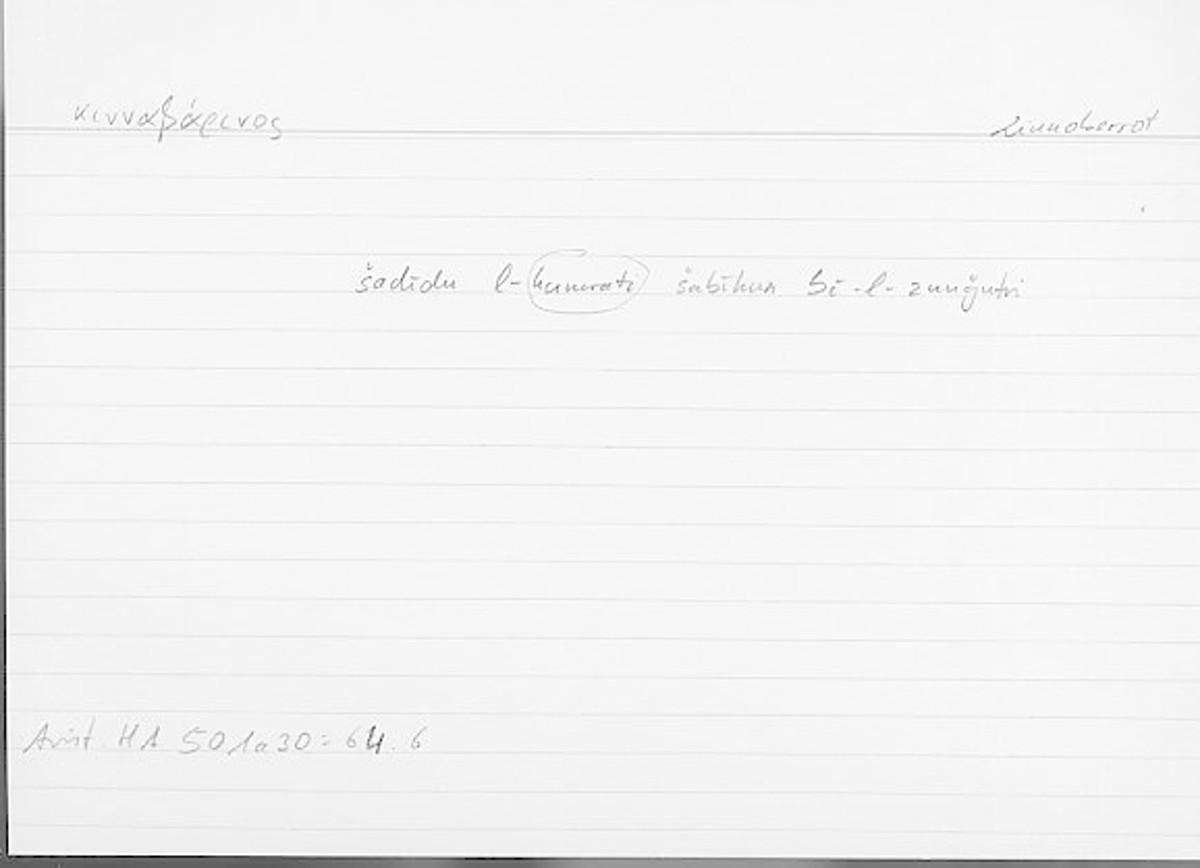 κινναβάρινος Zinnoberrot
šadīdu l-ḥumrati šabīhun bi-l-zunǧufri
Arist. HA 501a30 = 64.6